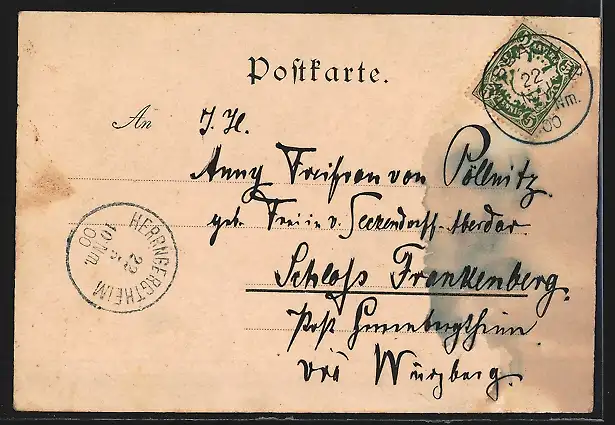 Postkarte.
An I. H.
Anny Freifrau von Pöllnitz
geb. Freiin v. Seckendorff-Aberdar
Schloß Frankenberg.
Post Herrnbergtheim
bei Würzburg.
HERRNBERGTHEIM
22
10 Nm.
00
22
Nm.
00
5
5